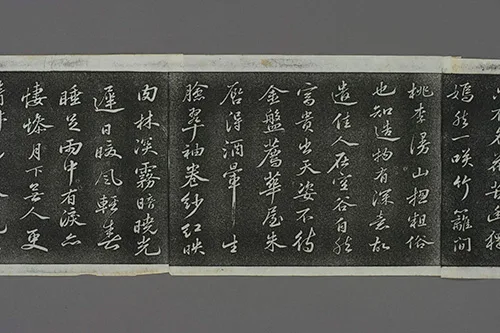 幽獨
嫣然一咲竹籬間
桃李漫山揔粗俗
也知造物有深意故
遣佳人在空谷自然
富貴出天姿不待
金盤薦華屋朱
唇得酒暈生
臉翠袖卷紗紅映
肉林深霧暗曉光
遲日暖風輕春
睡足雨中有淚亦
悽愴月下無人更